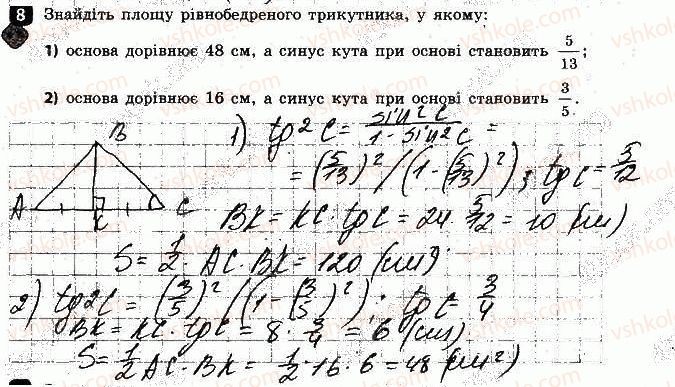 8 Знайдіть площу рівнобедреного трикутника, у якому:
1) основа дорівнює 48 см, а синус кута при основі становить 5/13;
2) основа дорівнює 16 см, а синус кута при основі становить 3/5.
B
A K C
1) tg²C = sin²C / 1 - sin²C =
= (5/13)² / (1 - (5/13)²); tgC = 5/12
BK = KC · tgC = 24 · 5/12 = 10 (см)
S = 1/2 · AC · BK = 120 (см²)
2) tg²C = (3/5)² / (1 - (3/5)²); tgC = 3/4
BK = KC · tgC = 8 · 3/4 = 6 (см)
S = 1/2 AC · BK = 1/2 · 16 · 6 = 48 (см²)
vshkole.com